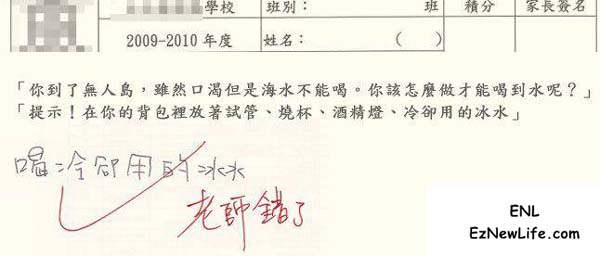 學校 班別： 班 積分 家長簽名
2009-2010 年度 姓名： （ ）
「你到了無人島，雖然口渴但是海水不能喝。你該怎麼做才能喝到水呢？」
「提示！在你的背包裡放著試管、燒杯、酒精燈、冷卻用的冰水」
喝冷卻用的冰水
老師錯了
ENL
EzNewLife.com